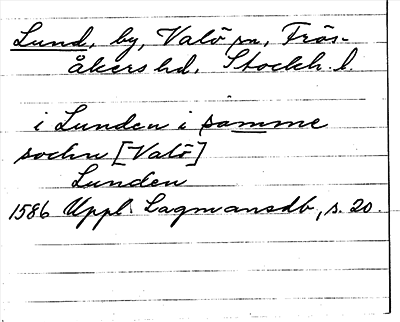 Lund, by, Valö sn, Frös-
åkers hd, Stockh. l.
i Lunden i samme
sochn [Valö]
Lunden
1586 Uppl. Lagmansdb, s. 20.